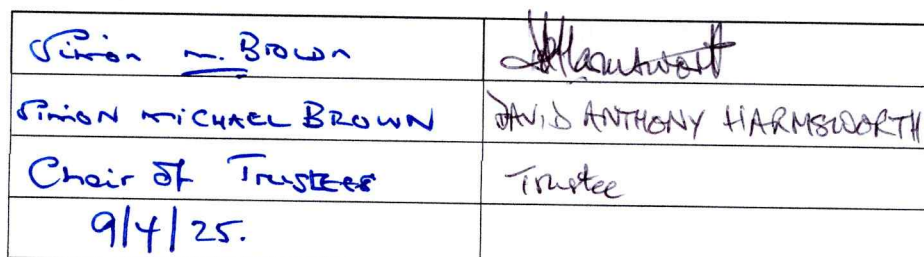 Simon M. Brown DAHarmsworth
SIMON MICHAEL BROWN DAVID ANTHONY HARMSWORTH
Chair of Trustees Trustee
9/4/25.